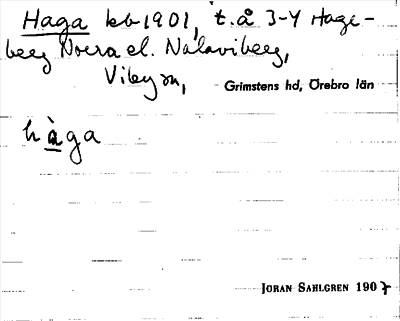 Haga kb 1901, t. å 3-4 Hage-
berg Norra el. Nalaviberg,
Viby sn,
Grimstens hd, Örebro län
hàga
JÖRAN SAHLGREN 1907